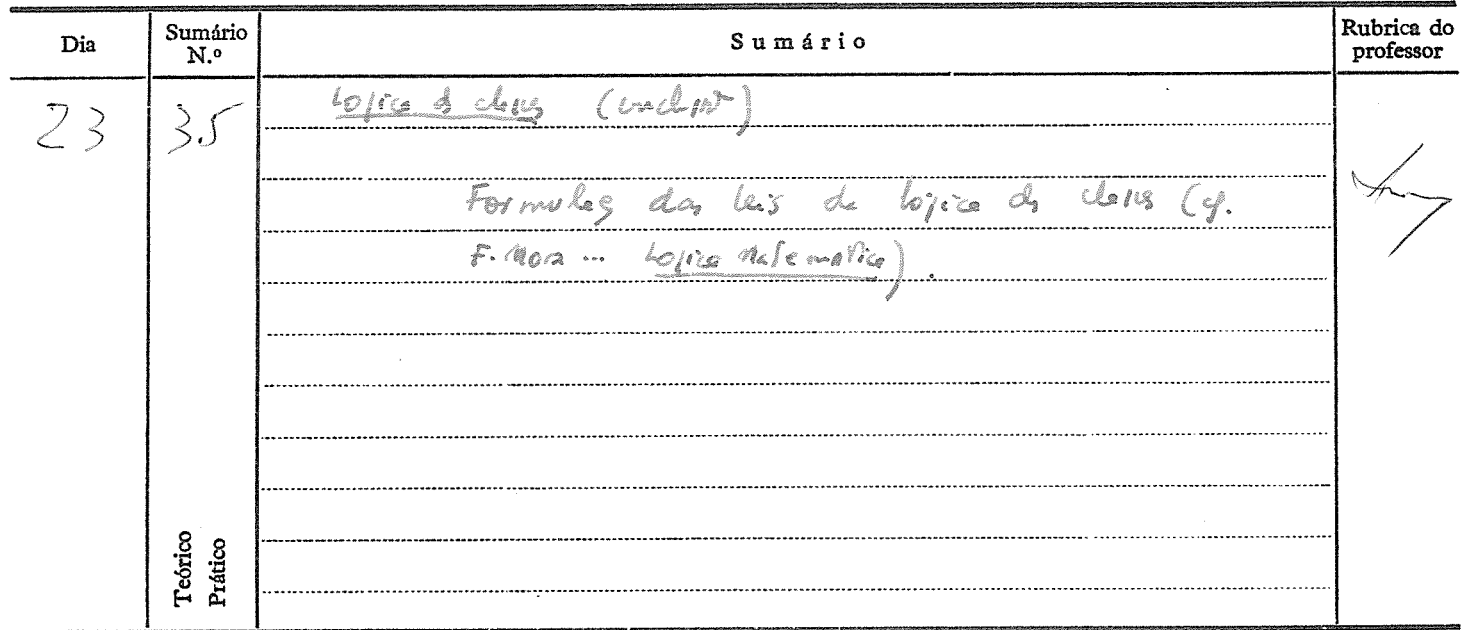 Dia
Sumário N.º
Sumário
Rubrica do professor
23
35
Lógica das classes (conclusão)
Formulas das leis da lógica das classes (cf.
F. Mora ... Lógica Matemática).
Teórico
Prático